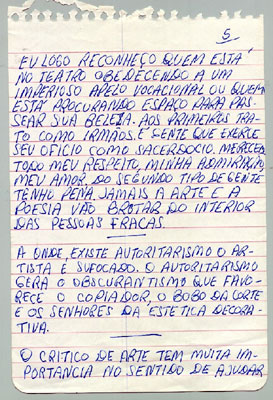 5
EU LOGO RECONHEÇO QUEM ESTÁ
NO TEATRO OBEDECENDO A UM
IMPERIOSO APELO VOCACIONAL OU QUEM
ESTÁ PROCURANDO ESPAÇO PARA PAS-
SEAR SUA BELEZA. AOS PRIMEIROS TRA-
TO COMO IRMÃOS. É GENTE QUE EXERCE
SEU OFICIO COMO SACERDOCIO. MERECEM
TODO MEU RESPEITO, MINHA ADMIRAÇÃO,
MEU AMOR. DO SEGUNDO TIPO DE GENTE
TENHO PENA. JAMAIS A ARTE E A
POESIA VÃO BROTAR DO INTERIOR
DAS PESSOAS FRACAS.
A ONDE EXISTE AUTORITARISMO O AR-
TISTA É SUFOCADO. O AUTORITARISMO
GERA O OBSCURANTISMO QUE FAVO-
RECE O COPIADOR, O BOBO DA CORTE
E OS SENHORES DA ESTETICA DECORA-
TIVA.
O CRITICO DE ARTE TEM MUITA IM-
PORTANCIA NO SENTIDO DE AJUDAR